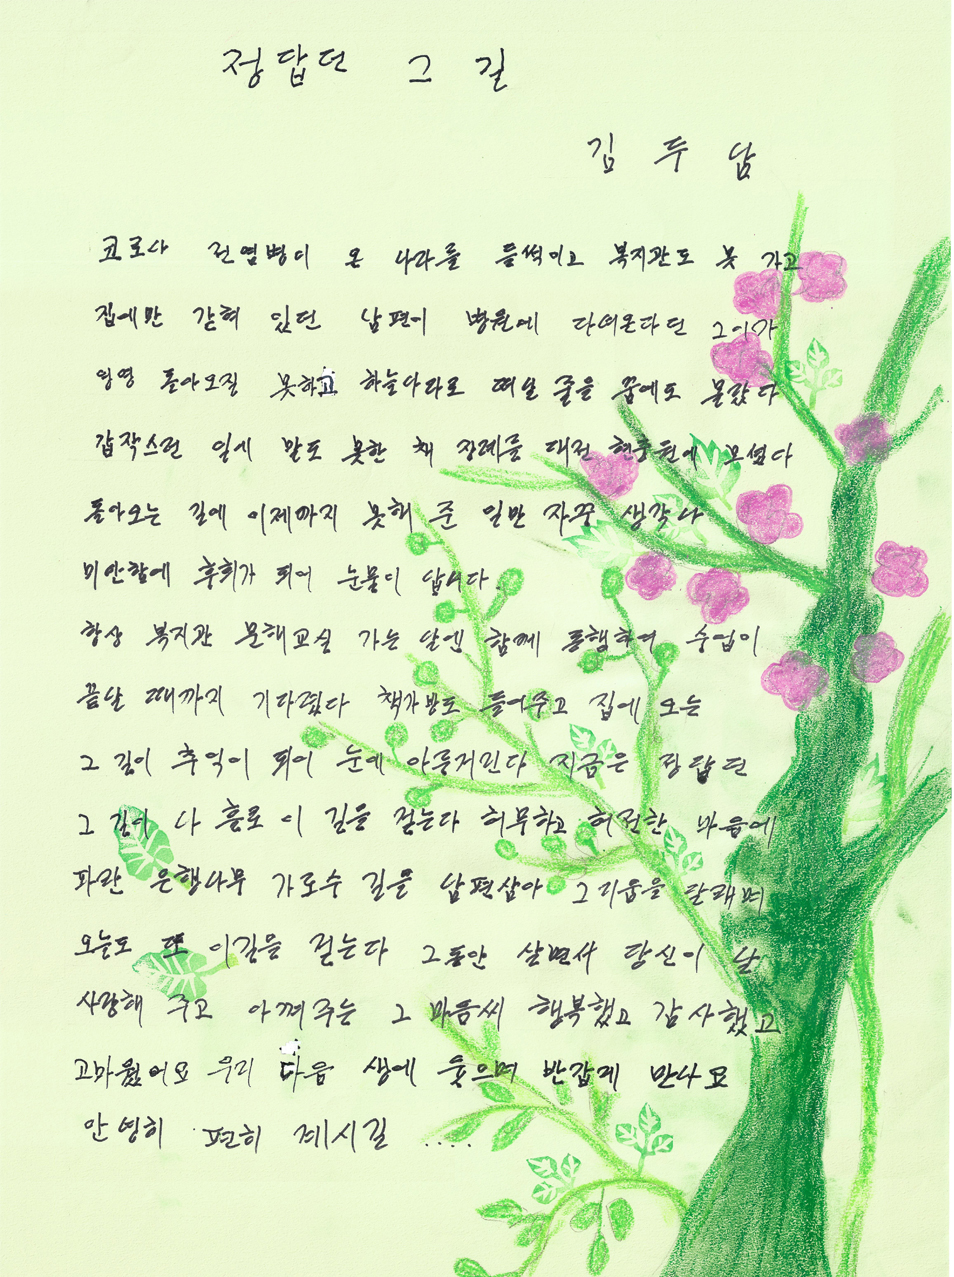 정답던 그 길
김 두 남
코로나 전염병이 온 나라를 들썩이고 복지관도 못 가고
집에만 갇혀 있던 남편이 병원에 다녀온다던 그이가
영영 돌아오질 못하고 하늘나라로 떠날 줄을 꿈에도 몰랐다
갑작스런 일시 말도 못한 채 장례를 대전 현충원에 모셨다
돌아오는 길에 이제까지 못해 준 일만 자꾸 생각나
미안함에 후회가 되어 눈물이 납니다.
항상 복지관 문해교실 가는 날엔 함께 동행하여 수업이
끝날 때까지 기다렸다 책가방도 들어주고 집에 오는
그 길이 추억이 되어 눈에 아른거린다 지금은 정답던
그 길에 나 홀로 이 길을 걷는다 허무하고 허전한 마음에
파란 은행나무 가로수 길을 남편삼아 그리움을 달래며
오늘도 또 이길을 걷는다 그동안 살면서 당신이 날
사랑해 주고 아껴주는 그 마음씨 행복했고 감사했고
고마웠어요 우리 다음 생에 웃으며 반갑게 만나요
안녕히 편히 계시길 .....